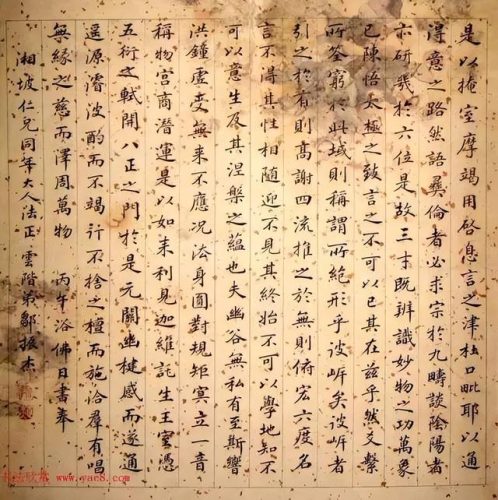 是以掩室摩竭用啓息言之津杜口毗耶以通
得意之路然語彝倫者必求宗於九疇談陰陽者
亦研幾於六位是故三才既辨識妙物之功萬象
已陳悟太極之致言之不可以已其在茲乎然爻繫
所筌窮於此域則稱謂所絕形乎彼岸矣彼岸者
引之於有則高謝四流推之於無則俯宏六度名
言不得其性相隨迎不見其終始不可以學地知不
可以意生及其涅槃之蘊也夫幽谷無私有至斯響
洪鐘虛受無來不應況法身圓對規矩冥立一音
稱物宮商潛運是以如来利見迦維託生王室憑
五衍之軾開八正之門於是元關幽楗感而遂通
遥源濬波酌而不竭行不捨之檀而施洽羣有唱
無緣之慈而澤周萬物 丙午浴佛日書奉
湘坡仁兄同年大人法正 雲階弟鄒振
www.yac8.com